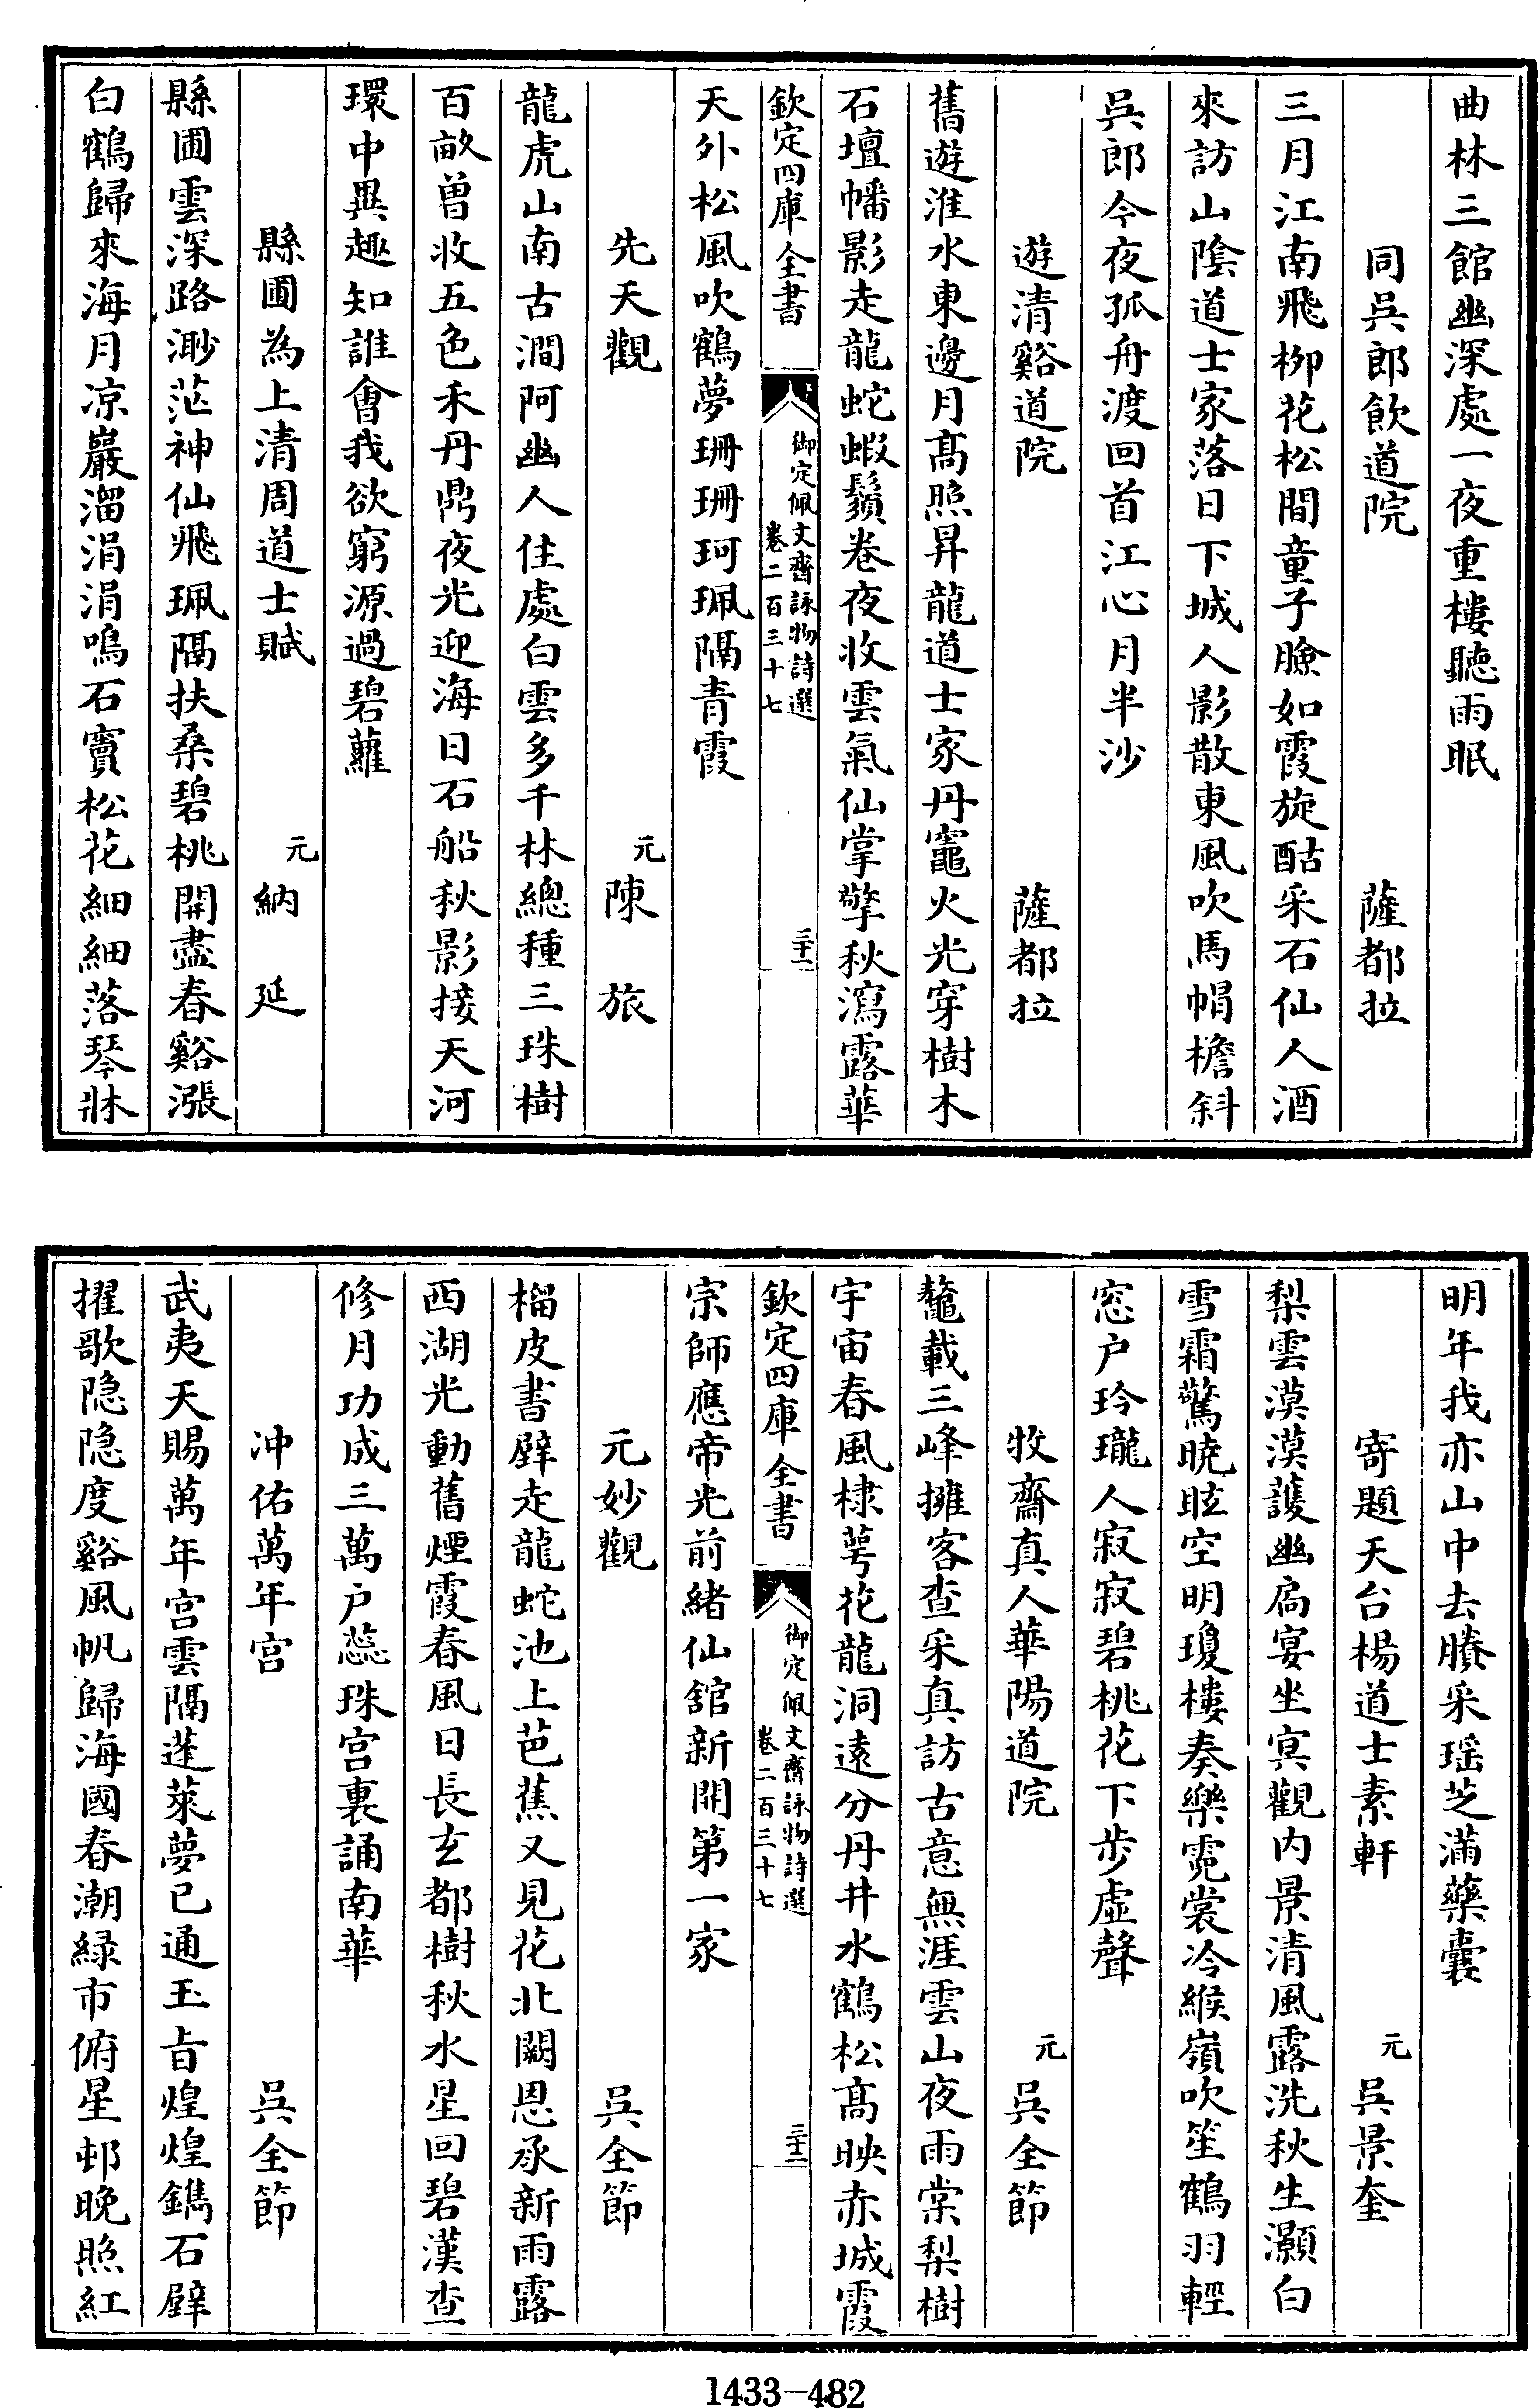 曲林三館幽深處一夜重樓聽雨眠
同吳郎飲道院 薩都拉
三月江南飛柳花松間童子臉如霞旋酤采石仙人酒
來訪山陰道士家落日下城人影散東風吹馬帽檐斜
吳郎今夜孤舟渡回首江心月半沙
遊清谿道院 薩都拉
舊遊淮水東邊月髙照昇龍道士家丹竈火光穿樹木
石壇幡影走龍蛇蝦鬚卷夜收雲氣仙掌擎秋瀉露華
欽定四庫全書 御定佩文齋詠物詩選 卷二百三十七 三十一
天外松風吹鶴夢珊珊珂珮隔青霞
先天觀 元陳旅
龍虎山南古澗阿幽人住處白雲多千林總種三珠樹
百畝曾收五色禾丹鼎夜光迎海日石船秋影接天河
環中異趣知誰會我欲窮源過碧蘿
縣圃為上清周道士賦 元納延
縣圃雲深路渺茫神仙飛珮隔扶桑碧桃開盡春谿漲
白鶴歸來海月凉巖溜涓涓鳴石竇松花細細落琴牀
明年我亦山中去賸采瑶芝滿藥囊
寄題天台楊道士素軒 元吳景奎
梨雲漠漠護幽扃宴坐㝠觀内景清風露洗秋生灝白
雪霜驚曉眩空明瓊樓奏樂霓裳冷緱嶺吹笙鶴羽輕
窓户玲瓏人寂寂碧桃花下步虛聲
牧齋真人華陽道院 元吳全節
鼇載三峰擁客查采真訪古意無涯雲山夜雨棠梨樹
宇宙春風棣萼花龍洞遠分丹井水鶴松髙映赤城霞
欽定四庫全書 御定佩文齋詠物詩選 卷二百三十七 三十二
宗師應帝光前緒仙舘新開第一家
元妙觀 吳全節
榴皮書壁走龍蛇池上芭蕉又見花北闕恩承新雨露
西湖光動舊煙霞春風日長玄都樹秋水星回碧漢查
修月功成三萬户蕊珠宫裏誦南華
冲佑萬年宫 吳全節
武夷天賜萬年宫雲隔蓬萊夢已通玉㫖煌煌鐫石壁
擢歌隐隐度谿風帆歸海國春潮緑市俯星邨晚照紅
1433-482